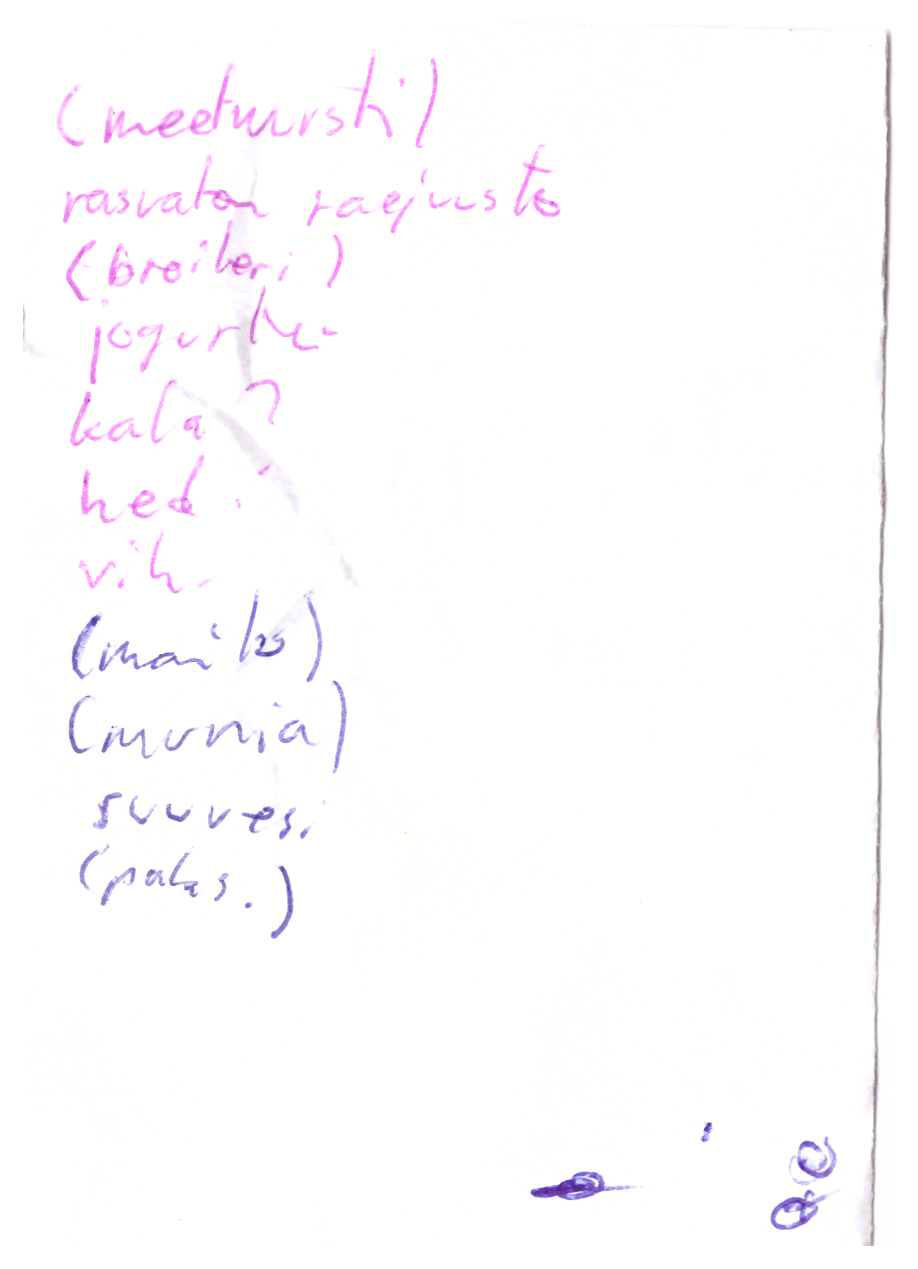 (meetwursti)
rasvaton raejuusto
(broileri)
jogurtti
kala?
hed.
vih.
(maito)
(munia)
suuvesi
(pakas.)